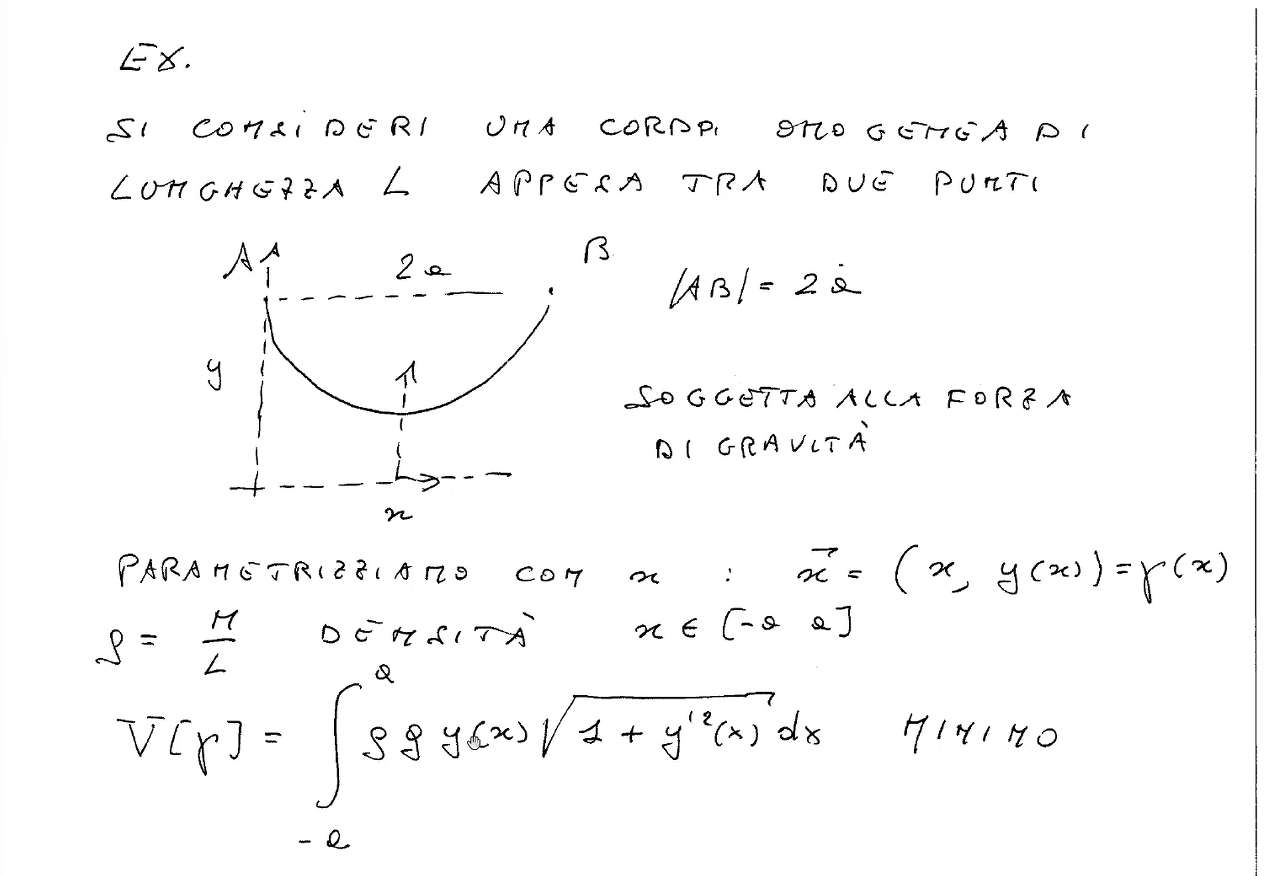 EX.
SI CONSIDERI UNA CORDA OMOGENEA DI
LUNGHEZZA L APPESA TRA DUE PUNTI
A 2a B
|AB| = 2a
y
SOGGETTA ALLA FORZA
DI GRAVITÀ
x
PARAMETRIZZIAMO CON x : x⃗ = (x, y(x)) = γ(x)
ρ = M/L DENSITÀ x ∈ [-a a]
V[γ] = ∫_{-a}^{a} ρ g y(x) √(1 + y'²(x)) dx MINIMO